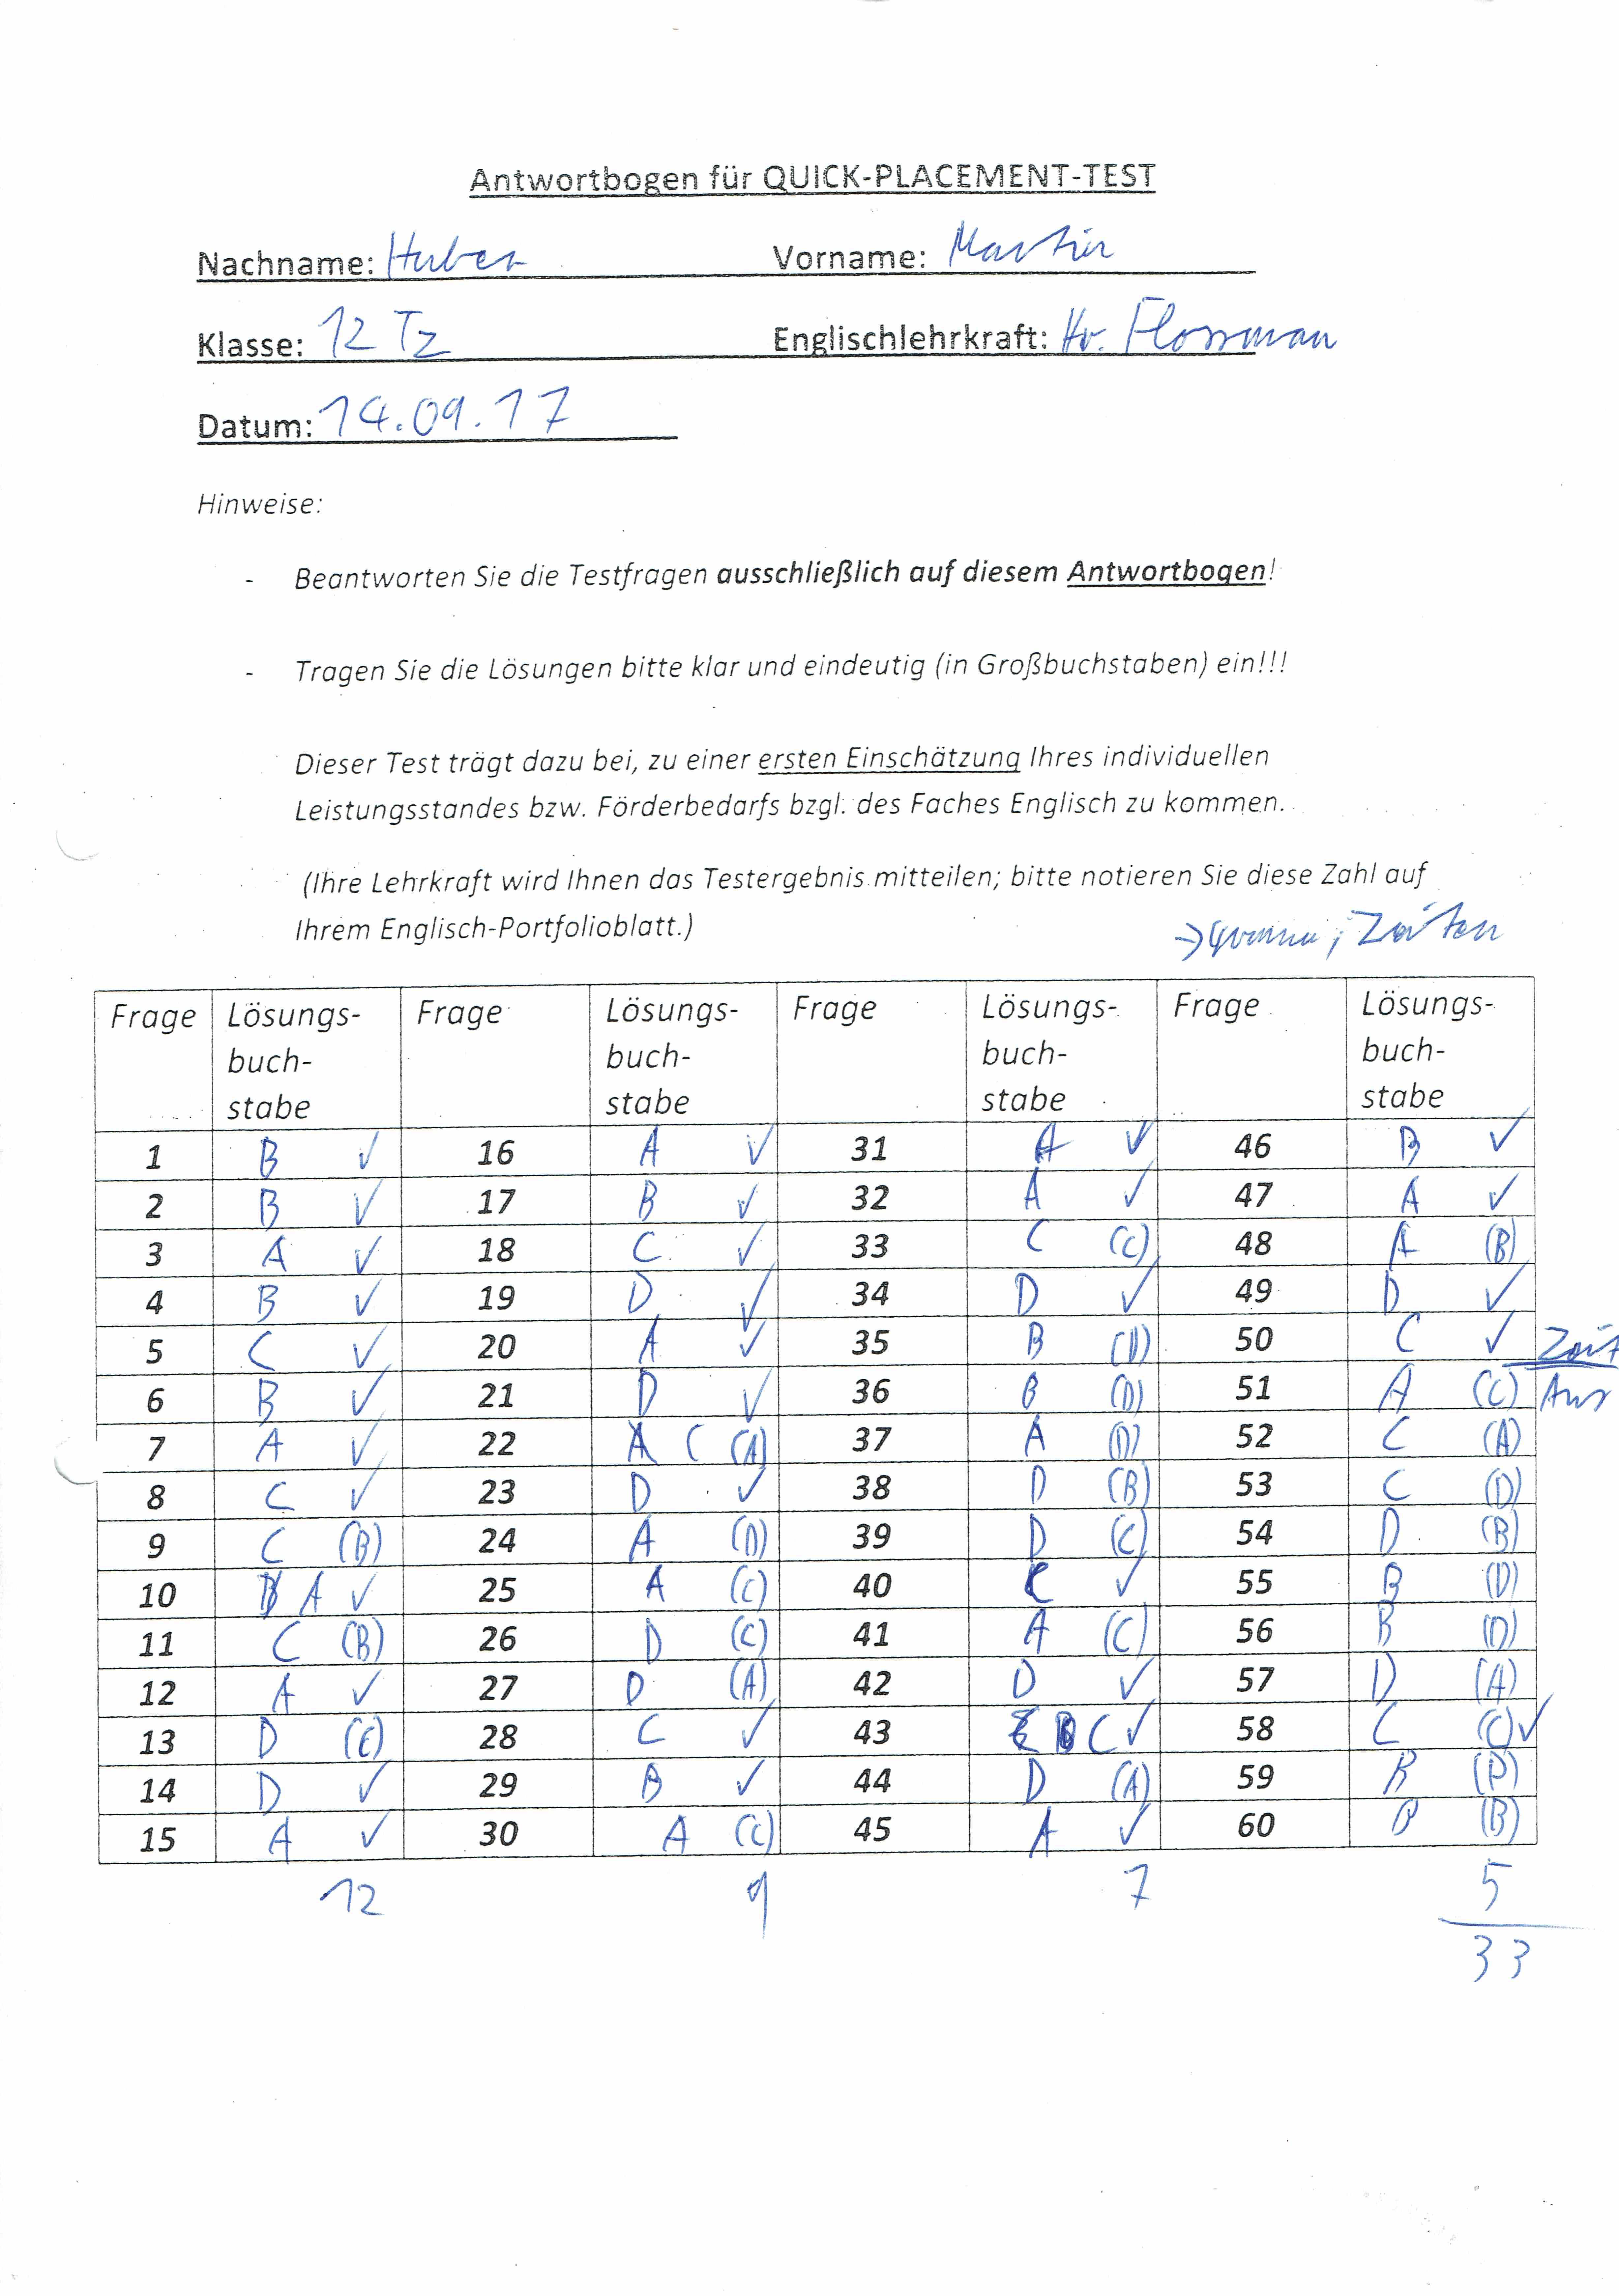 Antwortbogen für QUICK-PLACEMENT-TEST
Nachname: Huber Vorname: Martin
Klasse: 12 Tz Englischlehrkraft: Hr. Flossman
Datum: 14.09.17
Hinweise:
- Beantworten Sie die Testfragen ausschließlich auf diesem Antwortbogen!
- Tragen Sie die Lösungen bitte klar und eindeutig (in Großbuchstaben) ein!!!
Dieser Test trägt dazu bei, zu einer ersten Einschätzung Ihres individuellen
Leistungsstandes bzw. Förderbedarfs bzgl. des Faches Englisch zu kommen.
(Ihre Lehrkraft wird Ihnen das Testergebnis mitteilen; bitte notieren Sie diese Zahl auf
Ihrem Englisch-Portfolioblatt.)
Zeiten
Frage Lösungs- Frage Lösungs- Frage Lösungs- Frage Lösungs-
buch- buch- buch- buch-
stabe stabe stabe stabe
1 B ✓ 16 A ✓ 31 A ✓ 46 B ✓
2 B ✓ 17 B ✓ 32 A ✓ 47 A ✓
3 A ✓ 18 C ✓ 33 C (C) 48 A (B)
4 B ✓ 19 D ✓ 34 D ✓ 49 D ✓
5 C ✓ 20 A ✓ 35 B (D) 50 C ✓ Zeit
6 B ✓ 21 D ✓ 36 B (D) 51 A (C) Aus
7 A ✓ 22 A C (A) 37 A (D) 52 C (A)
8 C ✓ 23 D ✓ 38 D (B) 53 C (D)
9 C (B) 24 A (D) 39 D (C) 54 D (B)
10 B A ✓ 25 A (C) 40 C ✓ 55 B (D)
11 C (B) 26 D (C) 41 A (C) 56 B (D)
12 A ✓ 27 D (A) 42 D ✓ 57 D (A)
13 D (C) 28 C ✓ 43 C ✓ 58 C (C) ✓
14 D ✓ 29 B ✓ 44 D (A) 59 B (D)
15 A ✓ 30 A (C) 45 A ✓ 60 B (B)
12 9 7 5
33